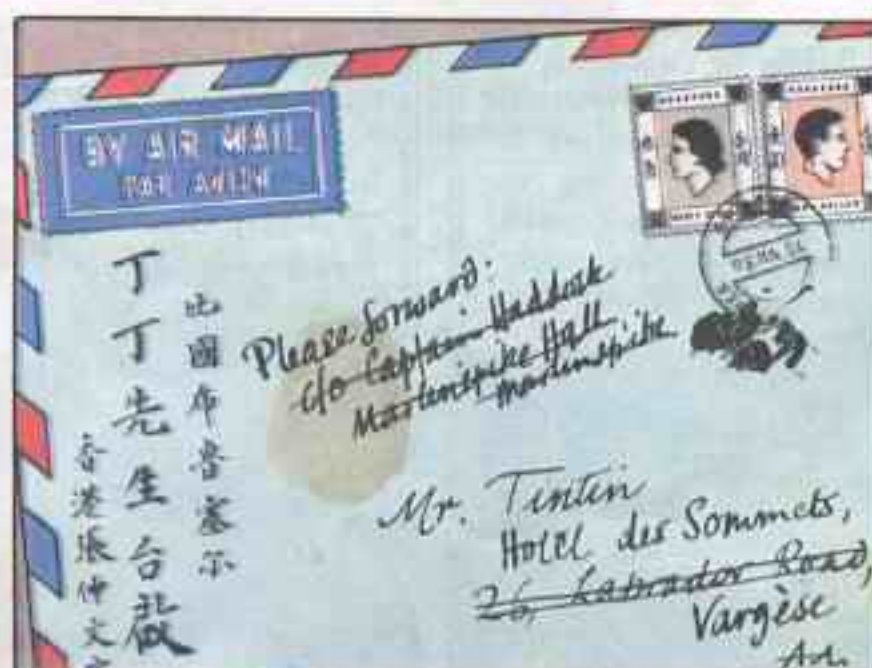 BY AIR MAIL
PAR AVION
HONGKONG
HONGKONG
比國布魯塞尔
丁丁先生台啟
香港張仲文
Please forward:
c/o Captain Haddock
Marlinspike Hall
Marlinspike
Mr. Tintin
Hotel des Sommets,
26, Labrador Road,
Vargèse